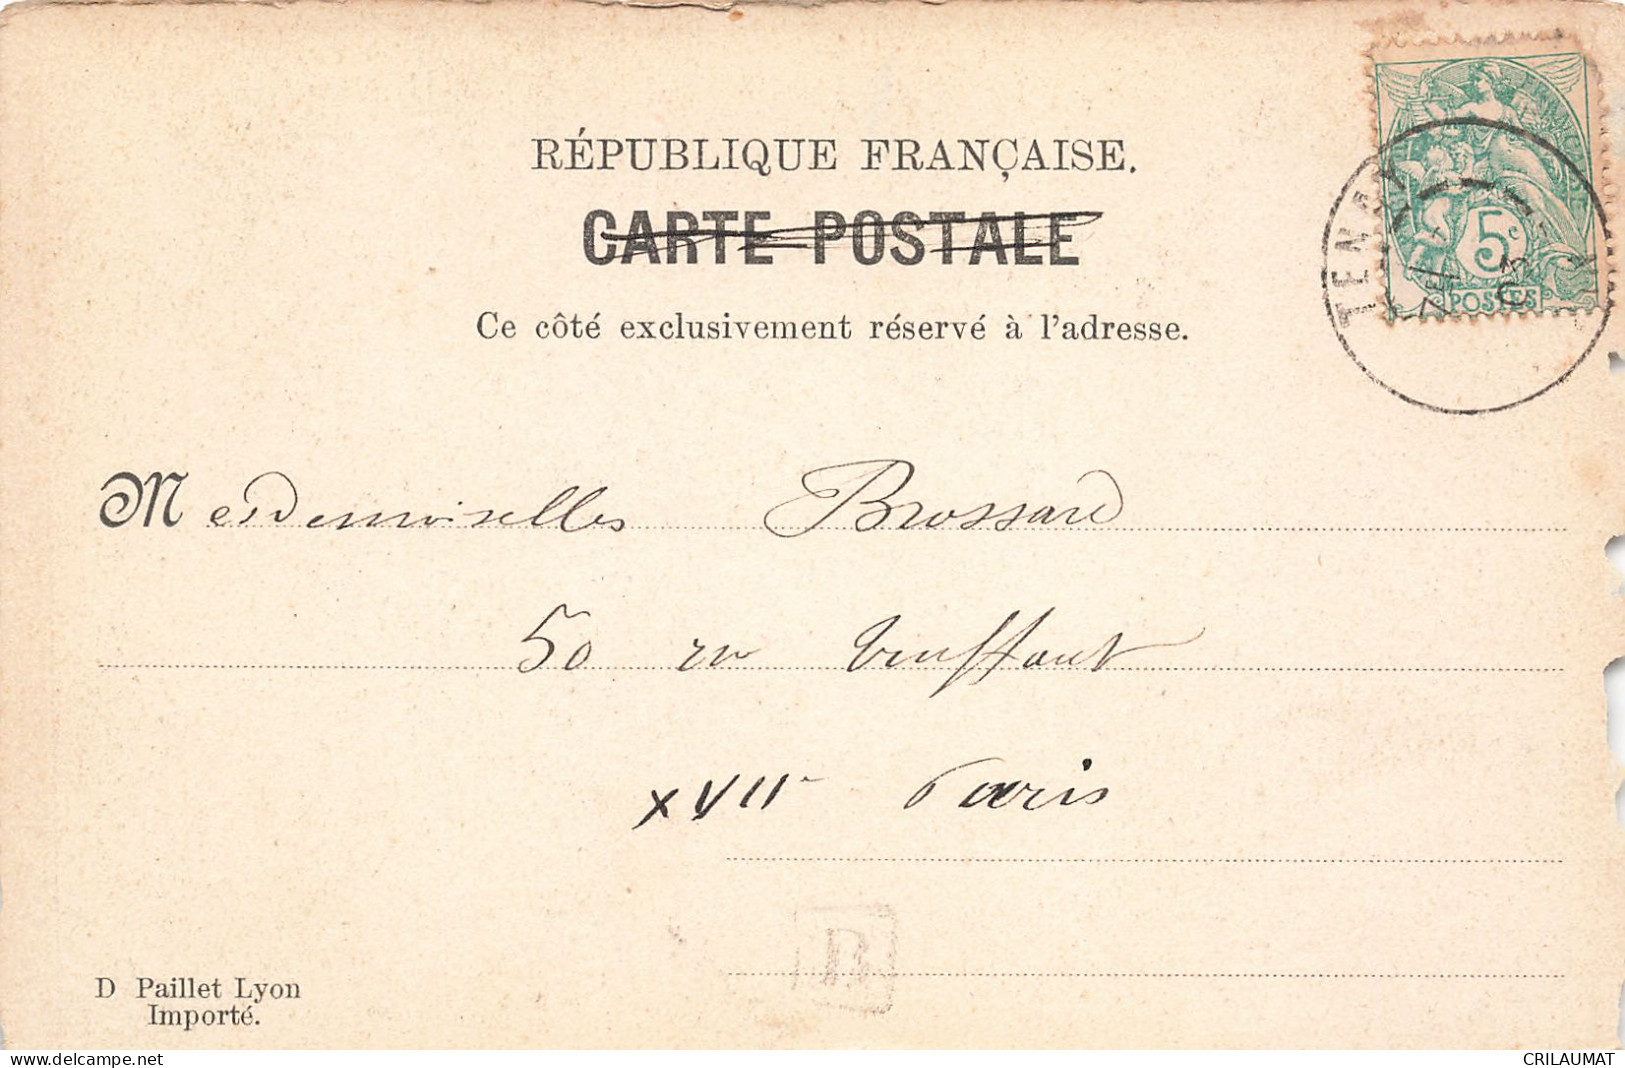 RÉPUBLIQUE FRANÇAISE.
CARTE POSTALE
Ce côté exclusivement réservé à l'adresse.
5c
POSTES
TENAY
03
Mesdemoiselles Brossard
50 rue Truffaut
XVIIe Paris
D Paillet Lyon
Importé.
www.delcampe.net
CRILAUMAT